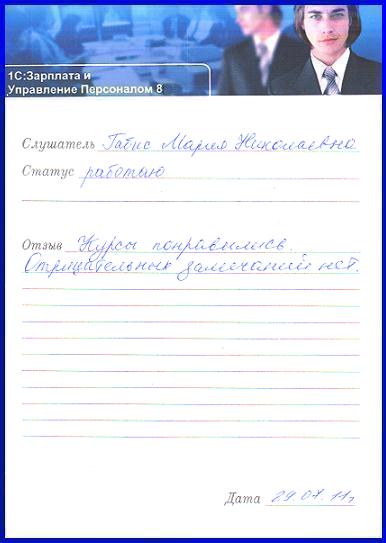 1С:Зарплата и
Управление Персоналом 8
Слушатель Габис Мария Николаевна
Статус работаю
Отзыв Курсы понравились.
Отрицательных замечаний нет.
Дата 29.07.11г.